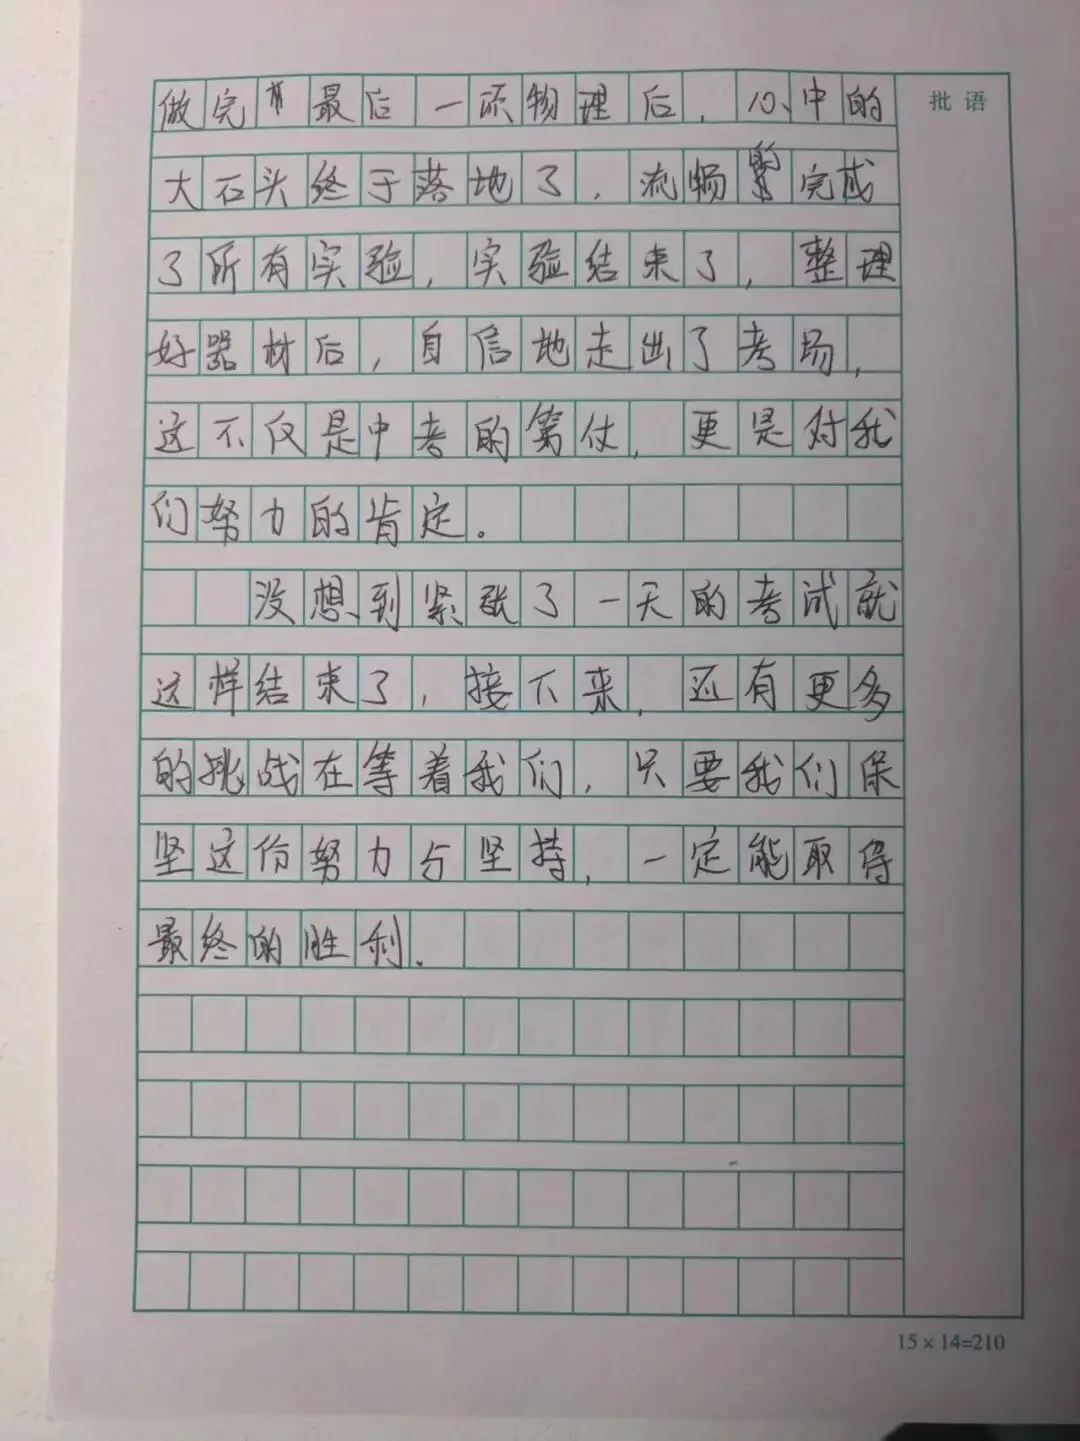 做完最后一项物理后，心中的
批语
大石头终于落地了，流畅的完成
了所有实验，实验结束了，整理
好器材后，自信地走出了考场，
这不仅是中考的第仗，更是对我
们努力的肯定。
没想到紧张了一天的考试就
这样结束了，接下来，还有更多
的挑战在等着我们，只要我们保
坚这份努力与坚持，一定能取得
最终的胜利.
15×14=210